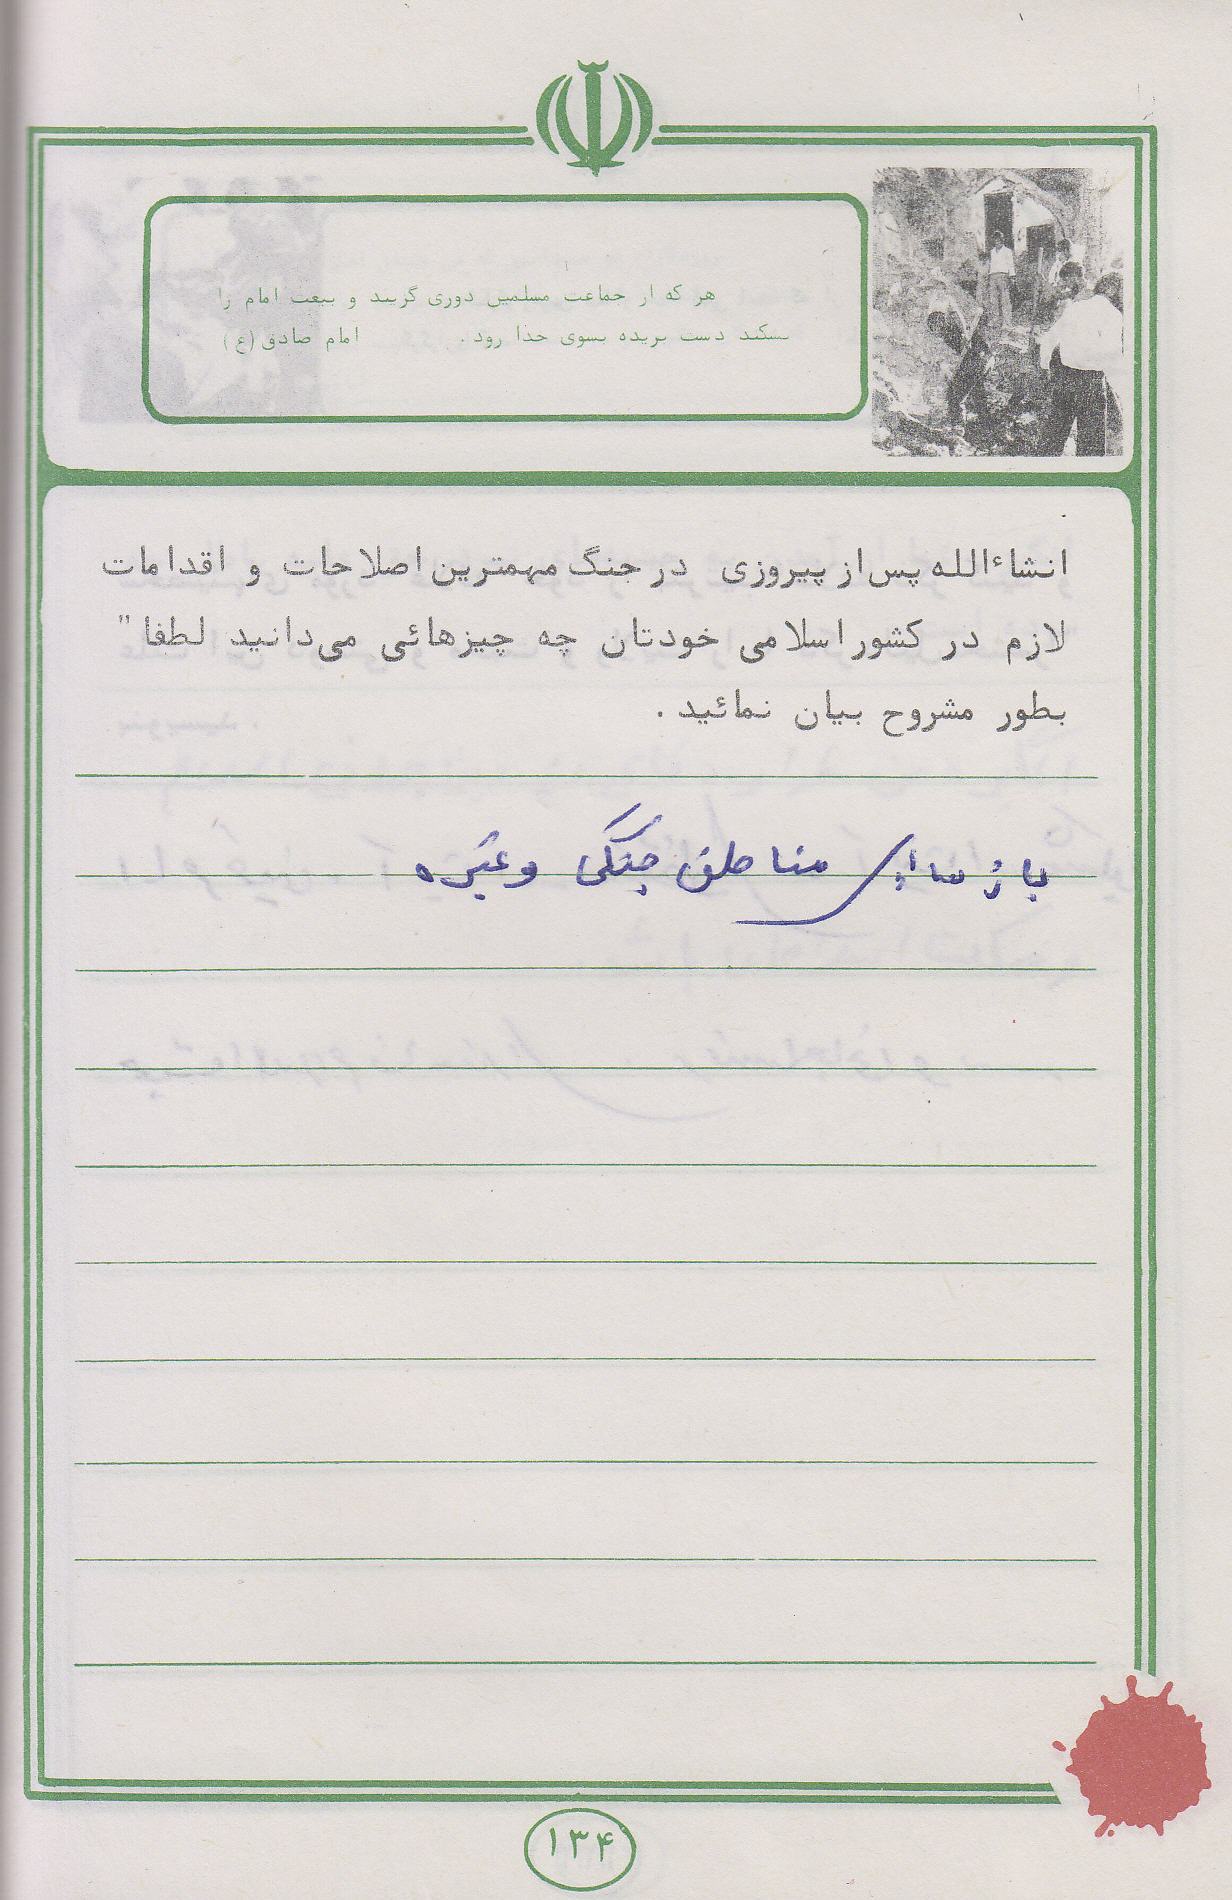 هر که از جماعت مسلمین دوری گزیند و بیعت امام را
بشکند دست بریده بسوی خدا رود . امام صادق (ع)
انشاءالله پس از پیروزی در جنگ مهمترین اصلاحات و اقدامات
لازم در کشور اسلامی خودتان چه چیزهائی می‌دانید لطفا"
بطور مشروح بیان نمائید .
بازسازی مناطق جنگی و غیره
۱۳۴